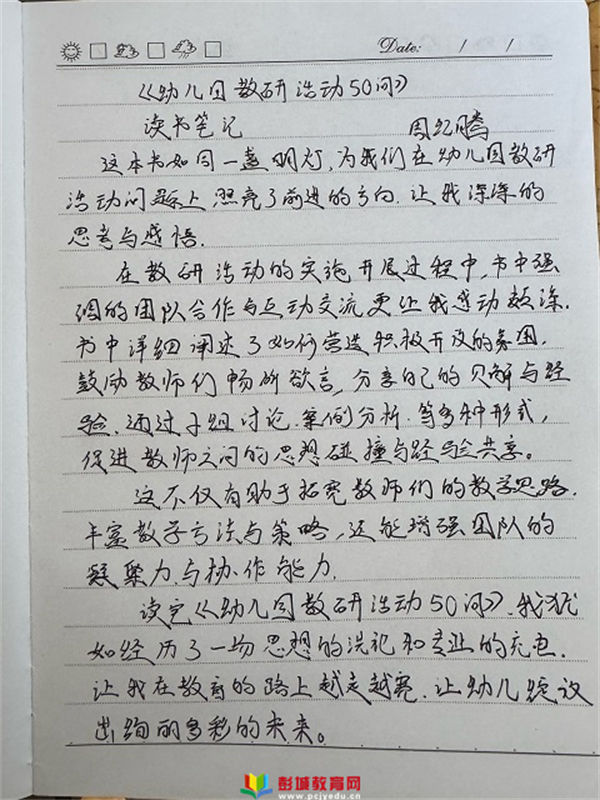 Date: / /
《幼儿园教研活动50问》
读书笔记 周红腾
这本书如同一盏明灯,为我们在幼儿园教研
活动问题上,照亮了前进的方向,让我深深的
思考与感悟.
在教研活动的实施开展过程中,书中强
调的团队合作与互动交流更让我感动颇深.
书中详细阐述了如何营造积极开放的氛围.
鼓励教师们畅所欲言,分享自己的见解与经
验.通过小组讨论.案例分析.等多种形式,
促进教师之间的思想碰撞与经验共享。
这不仅有助于拓宽教师们的教学思路.
丰富教学方法与策略,还能增强团队的
凝聚力与协作能力.
读完《幼儿园教研活动50问》.我犹
如经历了一场思想的洗礼和专业的充电.
让我在教育的路上越走越宽.让幼儿绽放
出绚丽多彩的未来。
彭城教育网
www.pcjyedu.cn